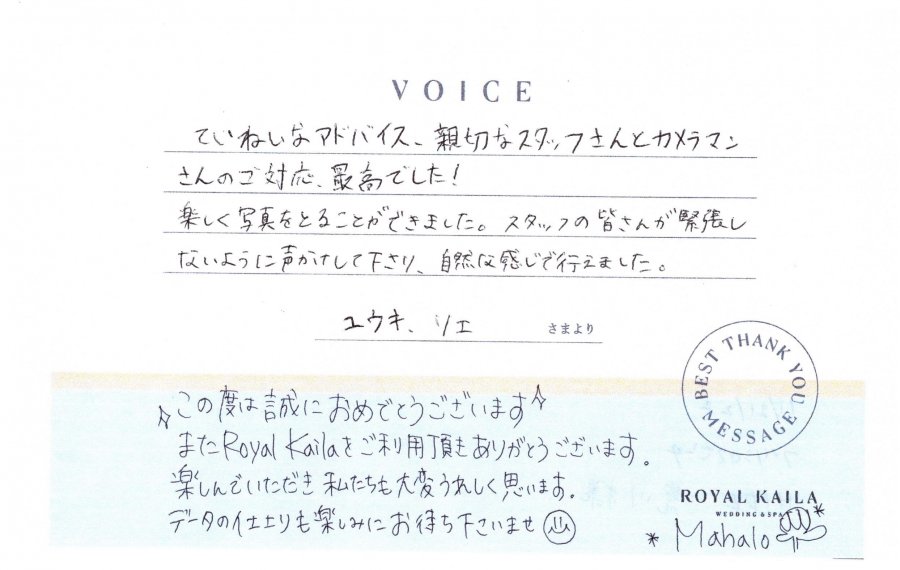 VOICE
ていねいなアドバイス、親切なスタッフさんとカメラマン
さんのご対応、最高でした!
楽しく写真をとることができました。スタッフの皆さんが緊張し
ないように声かけして下さり、自然な感じで行えました。
ユウキ、リエ さまより
BEST THANK YOU MESSAGE
この度は誠におめでとうございます
またRoyal Kailaをご利用頂きありがとうございます。
楽しんでいただき私たちも大変うれしく思います。
データの仕上りも楽しみにお待ち下さいませ
ROYAL KAILA
WEDDING & SPA
Mahalo